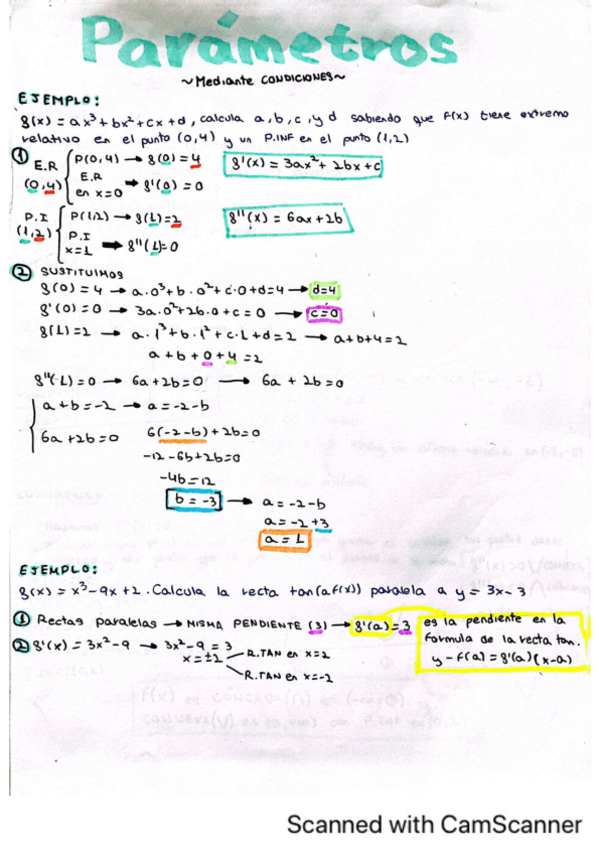 Parámetros
~Mediante CONDICIONES~
EJEMPLO:
f(x) = ax³ + bx² + cx + d, calcula a, b, c, y d sabiendo que f(x) tiene extremo
relativo en el punto (0,4) y un P.INF en el punto (1,2)
① E.R (0,4) { P(0,4) → f(0) = 4
E.R en x=0 → f'(0) = 0
f'(x) = 3ax² + 2bx + c
P.I (1,2) { P(1,2) → f(1) = 2
P.I x=1 → f''(1)=0
f''(x) = 6ax + 2b
② SUSTITUIMOS
f(0) = 4 → a·0³ + b·0² + c·0 + d = 4 → d=4
f'(0) = 0 → 3a·0² + 2b·0 + c = 0 → c=0
f(1) = 2 → a·1³ + b·1² + c·1 + d = 2 → a+b+4=2
a + b + 0 + 4 = 2
f''(1) = 0 → 6a + 2b = 0 → 6a + 2b = 0
{ a + b = -2 → a = -2-b
6a + 2b = 0 6(-2-b) + 2b = 0
-12 - 6b + 2b = 0
-4b = 12
b = -3 → a = -2-b
a = -2+3
a = 1
EJEMPLO:
f(x) = x³ - 9x + 2. Calcula la recta tan(a,f(x)) paralela a y = 3x - 3
① Rectas paralelas → MISMA PENDIENTE (3) → f'(a) = 3
es la pendiente en la
formula de la recta tan.
y - f(a) = f'(a)(x-a)
② f'(x) = 3x² - 9 → 3x² - 9 = 3
x = ±2
R.TAN en x=2
R.TAN en x=-2
Scanned with CamScanner